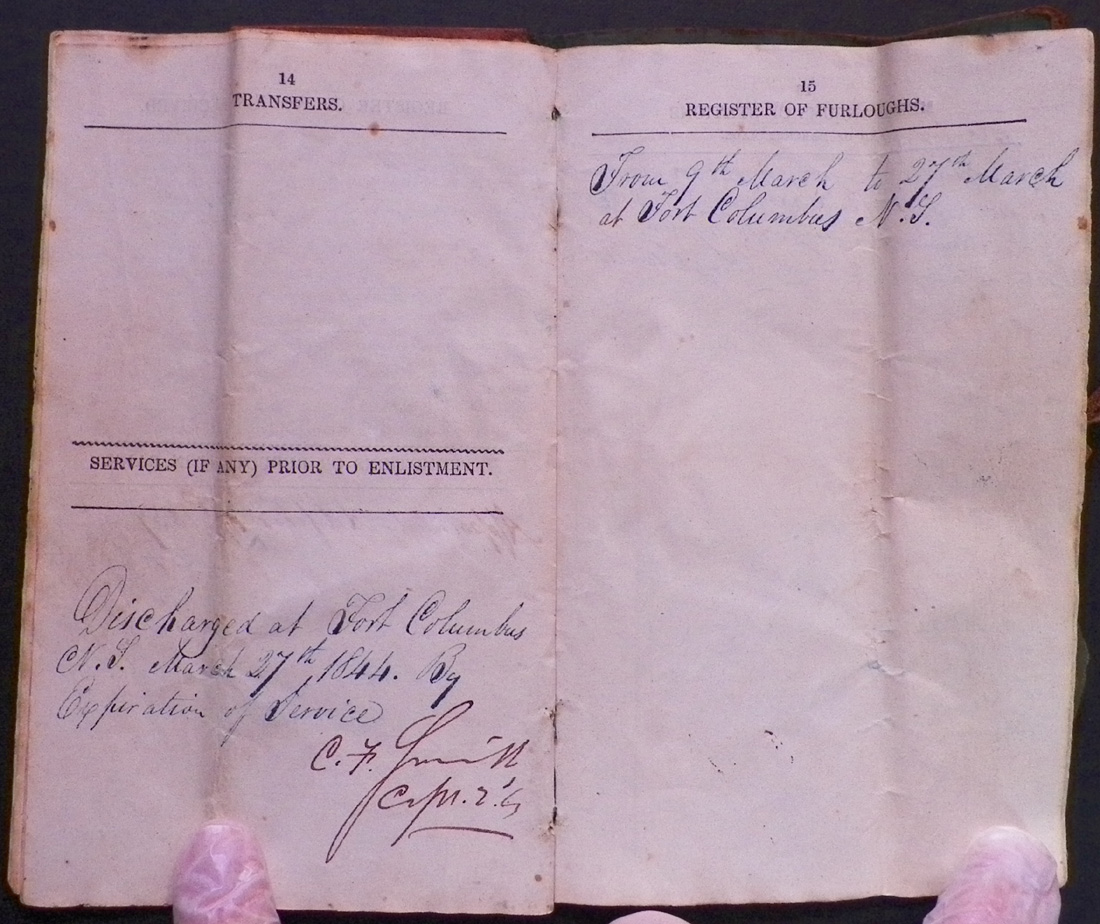 14
TRANSFERS.
SERVICES (IF ANY) PRIOR TO ENLISTMENT.
Discharged at Fort Columbus
N.Y. March 27th 1844. By
Expiration of Service
C. F. Smith
15
REGISTER OF FURLOUGHS.
From 9th March to 27th March
at Fort Columbus N.Y.